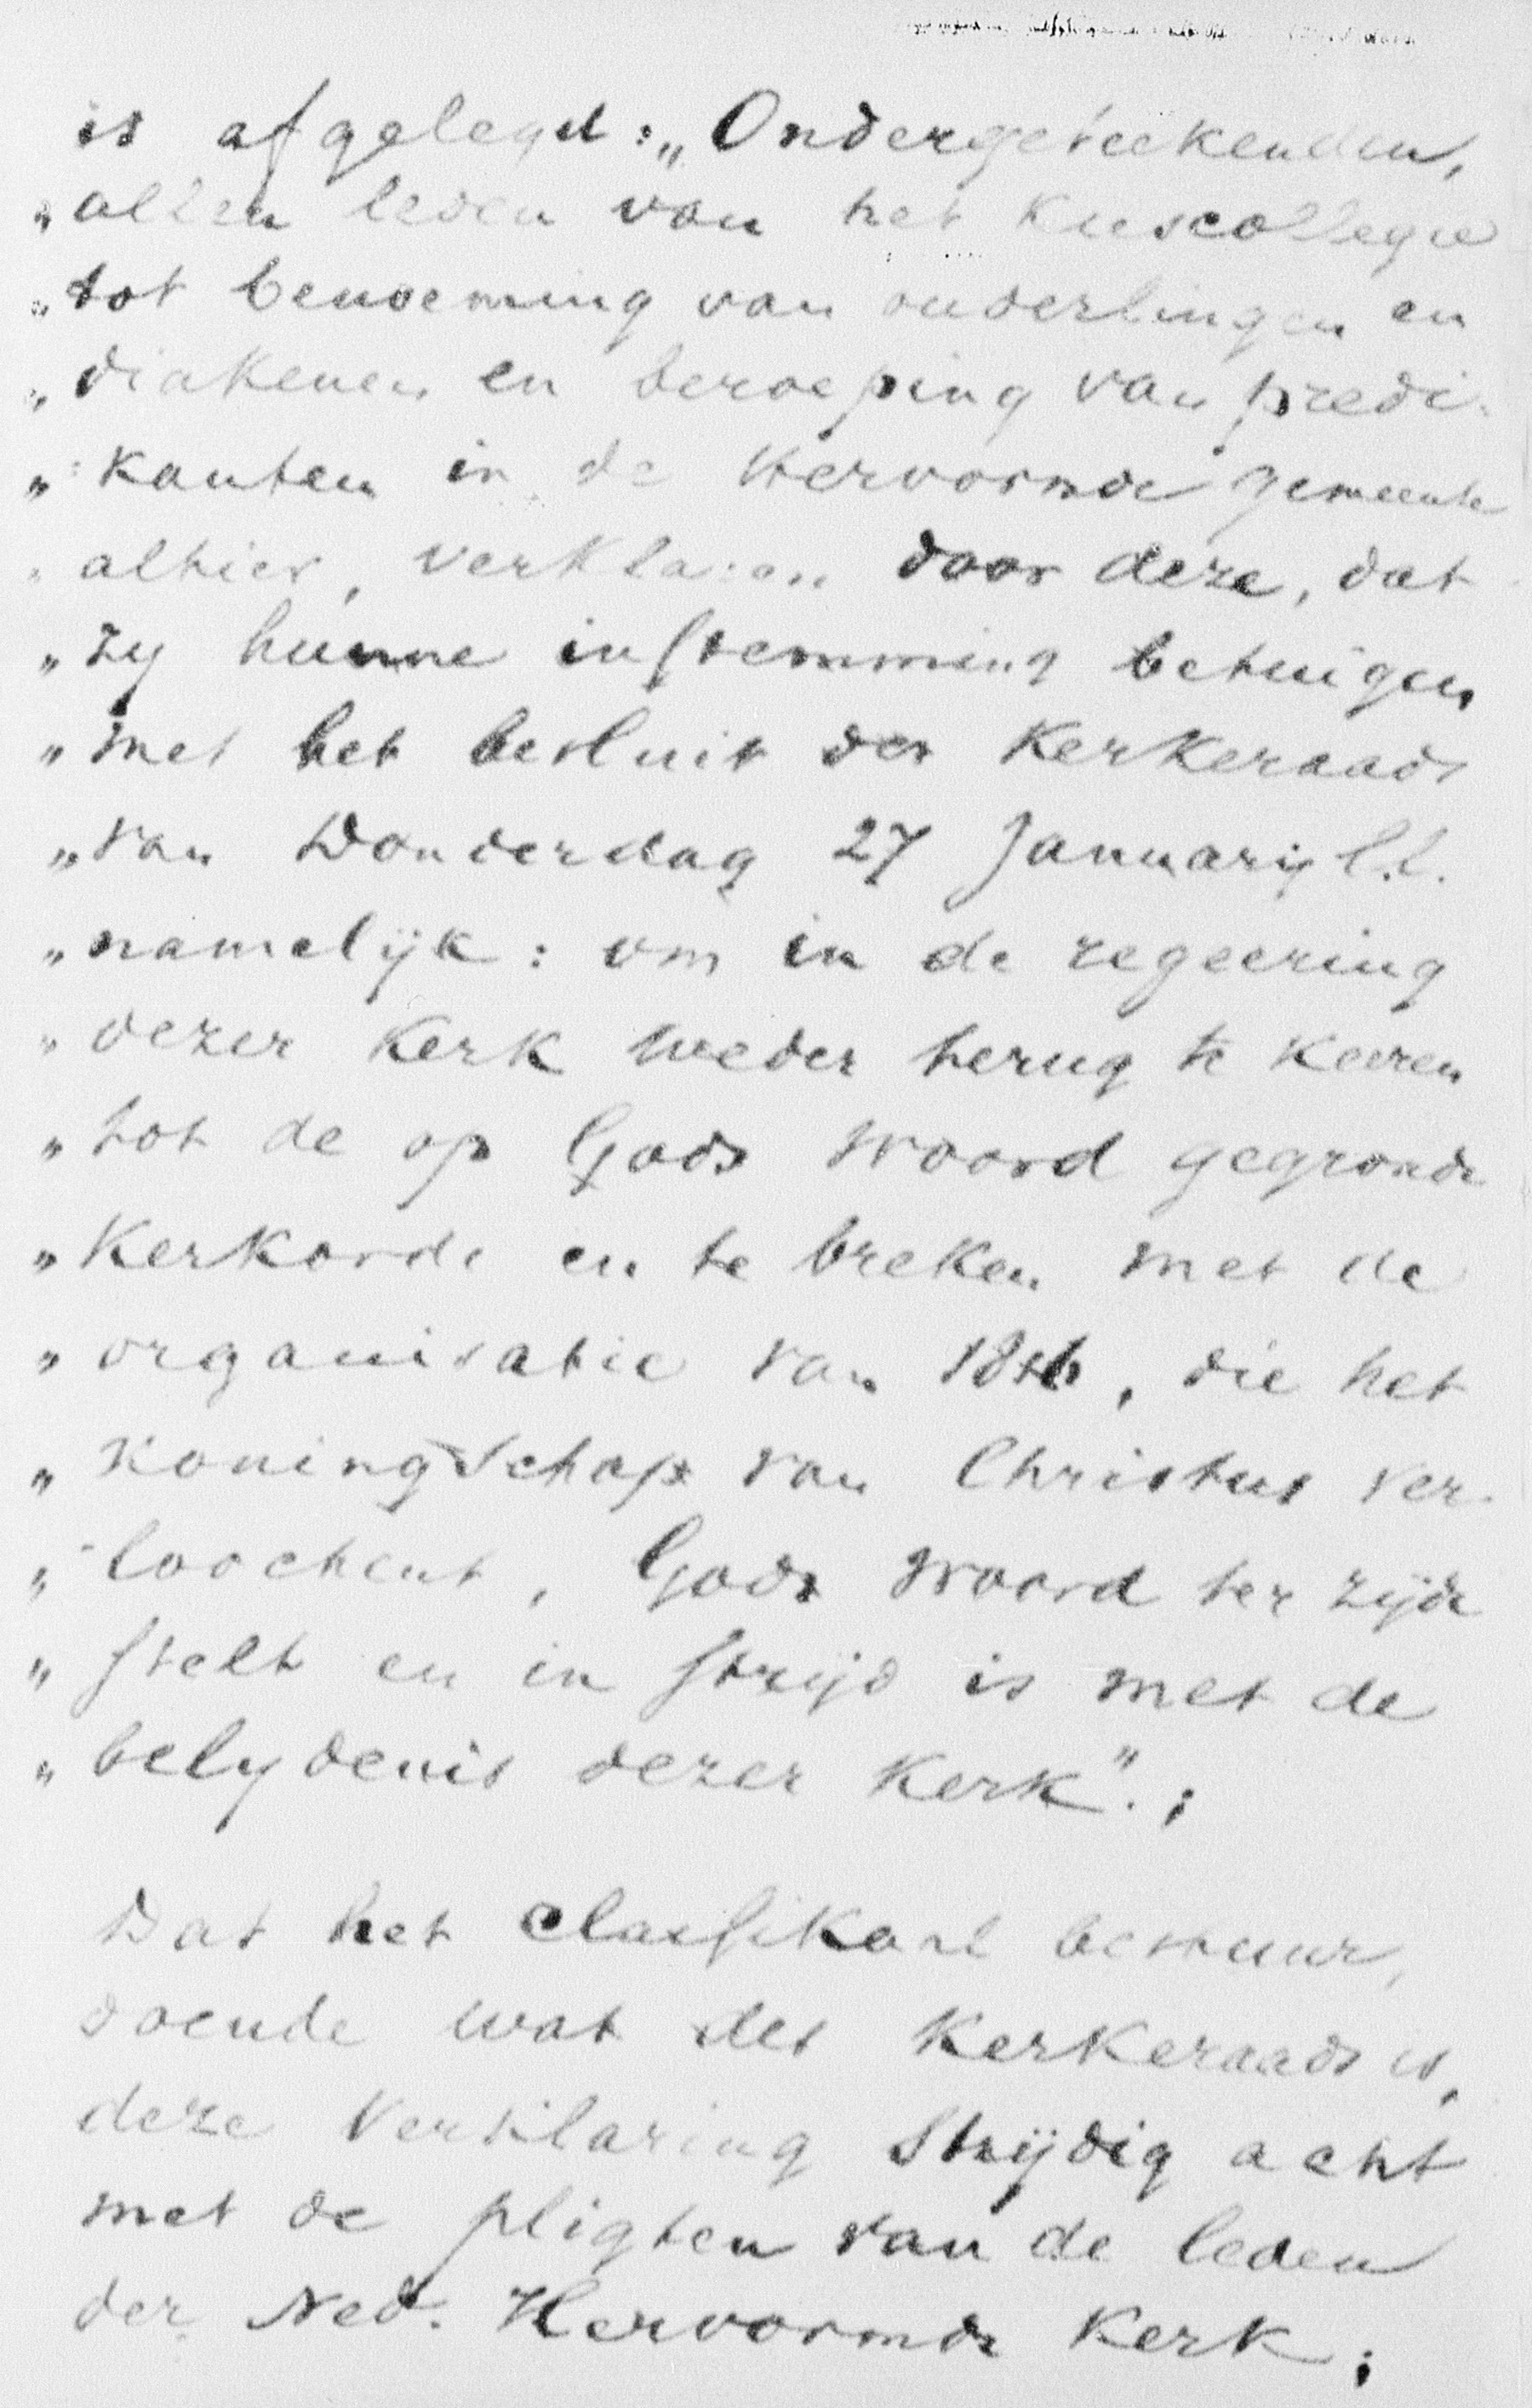 is afgelegd: „Ondergeteekenden,
„allen leden van het Kiescollegie
„tot benoeming van ouderlingen en
„diakenen en beroeping van predi-
„kanten in de Hervormde gemeente
„alhier, verklaren door deze, dat
„zy hunne instemming betuigen
„met het besluit des Kerkeraads
„van Donderdag 27 January l.l.
„namelijk: om in de regeering
„dezer Kerk weder terug te keeren
„tot de op Gods Woord gegronde
„Kerkorde en te breken met de
„organisatie van 1816, die het
„Koningschap van Christus ver-
„loochent, Gods Woord ter zijde
„stelt en in strijd is met de
„belydenis dezer Kerk".;
Dat het classikaal bestuur,
doende wat des Kerkeraads is,
deze Verklaring strijdig acht
met de pligten van de leden
der Ned. Hervormde Kerk;